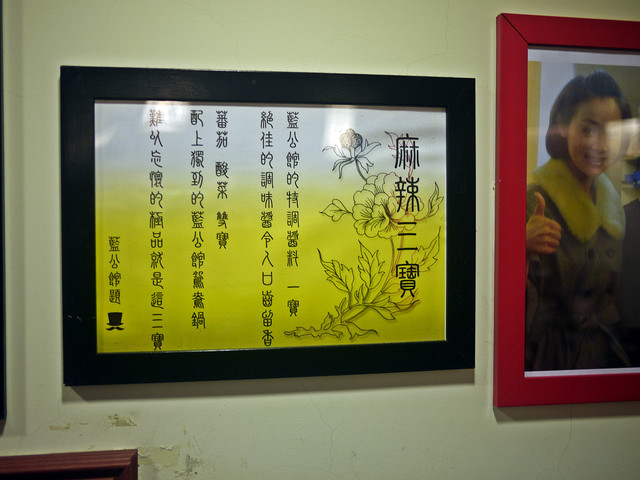 麻辣三寶
藍公館的特調醬料 一寶
絕佳的調味醬令人口齒留香
蕃茄 酸菜 雙寶
配上獨到的藍公館鴛鴦鍋
難以忘懷的極品就是這三寶
藍公館題